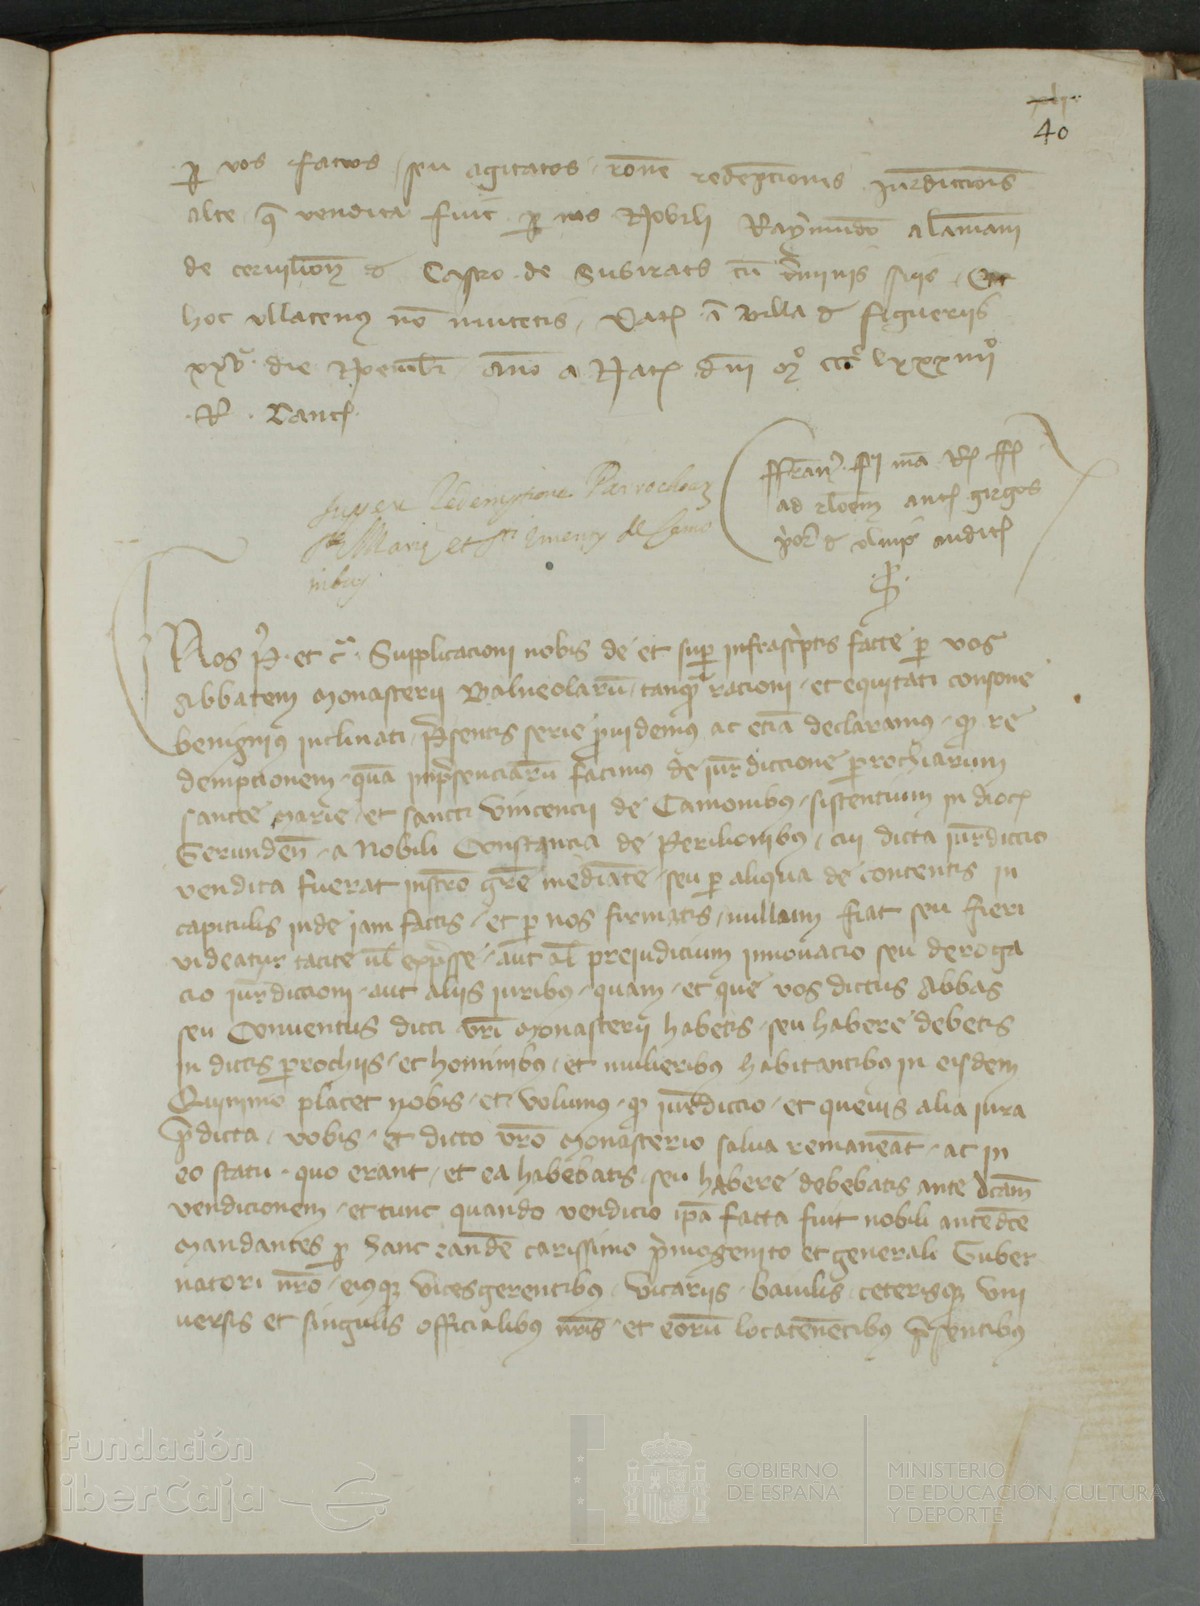 40
p vos factos seu agitatos rone redepcionis Jurdiccionis
alte q vendita fuit p nos Nobili Raymundo alamani
de cervilion d Castro de Subirats cu suis Et
hoc ullatenus no mutetis Dat i villa d figueriis
die ano a Nat dni lxxxiiii
R
super Redemptione Parrochiar
Ste Marie et Sti Vincencii de Camo
nibus
Nos P et c Supplicacioni nobis de et sup infrascriptis facte p vos
Abbatem Monasterii Balneolaru tanq racioni et equitati consone
benignius inclinati psentis serie pvidemus ac etia declaramus q re
dempcionem qua impsenciaru facimus de iurdiccione prochiarum
sancte Marie et sancti Vincencii de Camonibus sistentium in dioc
Gerunden a Nobili Constancia de Perilionibus cui dicta iurdiccio
vendita fuerat instro gre mediate seu p aliqua de contentis in
capitulis inde iam factis et p nos firmatis nullam fiat seu fieri
videatur tacite ul expsse aut al prejudicium innovacio seu deroga
cio iurdiccioni aut aliis iuribus quam et que vos dictus Abbas
seu Conventus dicti vri Monasterii habetis seu habere debetis
in dictis prochiis et hominibus et mulieribus habitantibus in eisdem
Quinimo placet nobis et volumus q iurdiccio et quevis alia iura
pdicta vobis et dicto vro Monasterio salva remaneat ac in
eo statu quo erant et ea habebatis seu habere debebatis ante dcam
vendicionem et tunc quando vendicio ipa facta fuit nobili antedce
Mandantes p hanc eande carissimo pmogenito et generali Guber
natori nro eiusq vicesgerentibus vicariis baiulis ceterisq uni
versis et singulis officialibus nris et eoru locatenetibus psentibus
Fundación
iberCaja
GOBIERNO
DE ESPAÑA
MINISTERIO
DE EDUCACIÓN, CULTURA
Y DEPORTE